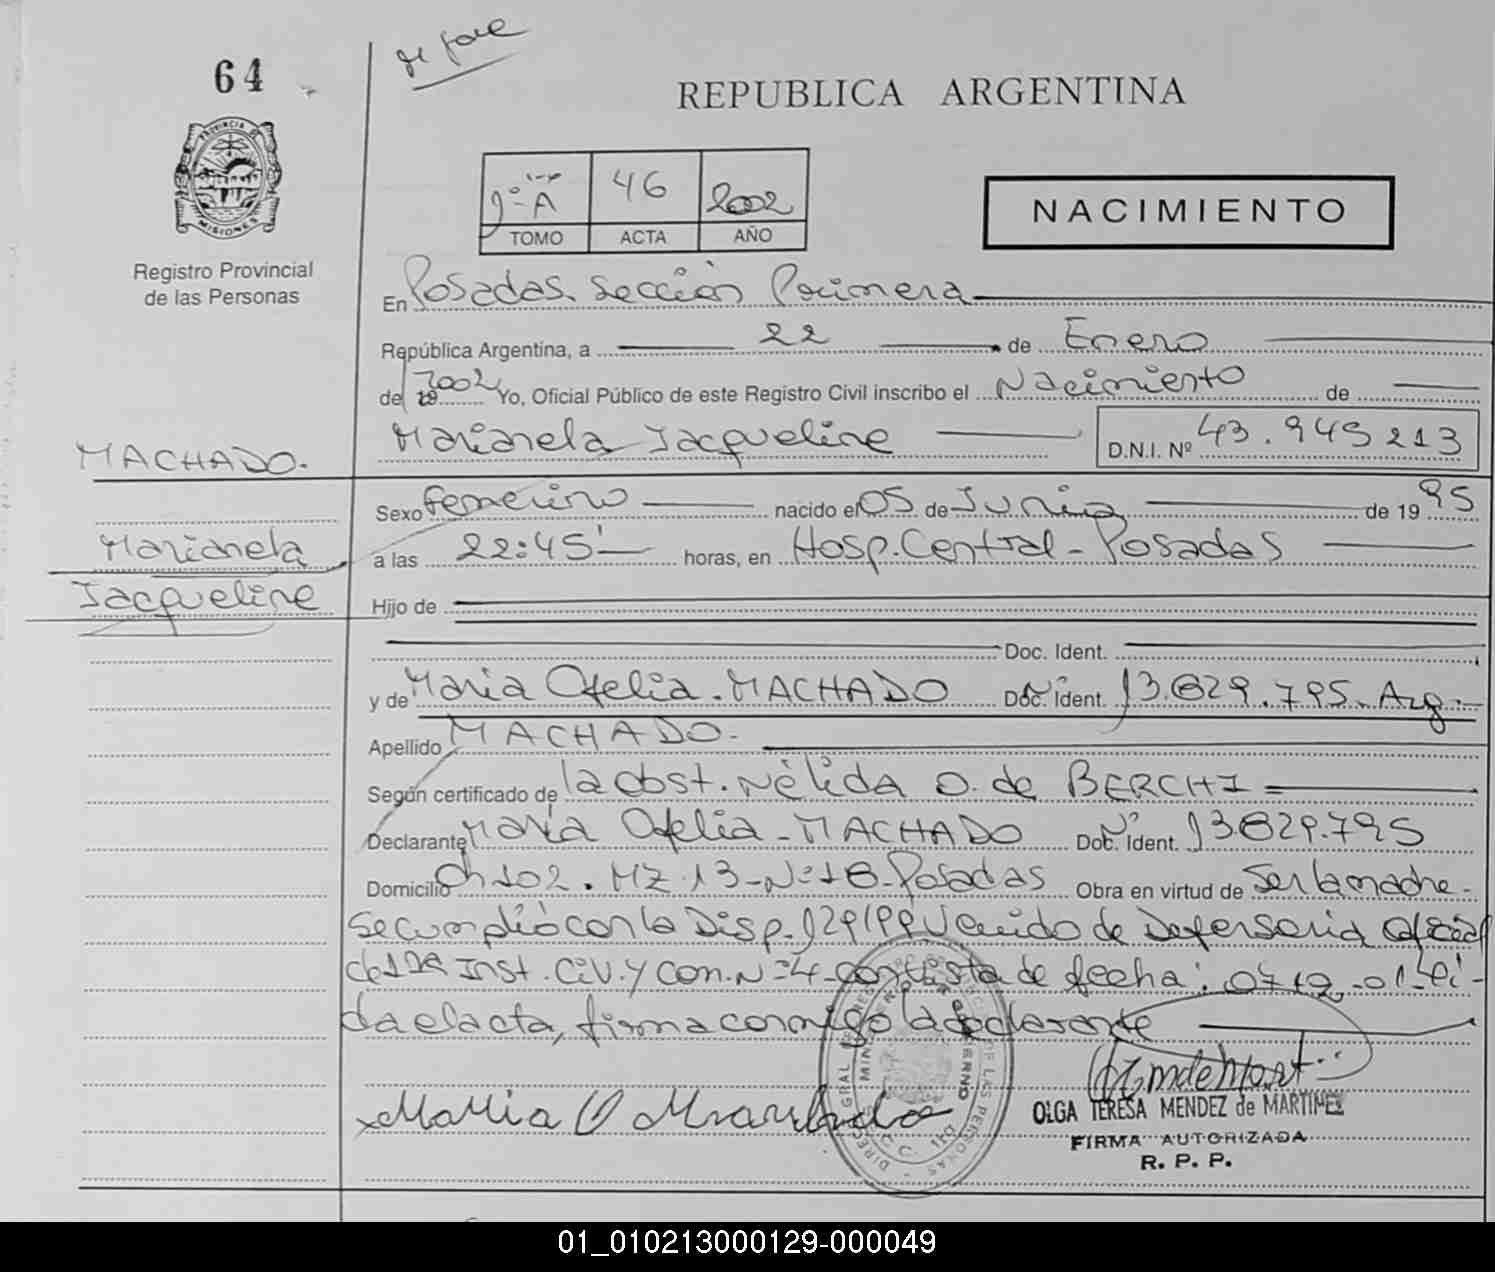 64
REPUBLICA ARGENTINA
PROVINCIA DE
MISIONES
Registro Provincial
de las Personas
1º A 46 2002
TOMO ACTA AÑO
NACIMIENTO
En Posadas. Sección Primera
República Argentina, a 22 de Enero
de 19 2002 Yo, Oficial Público de este Registro Civil inscribo el Nacimiento de
Marianela Jacqueline D.N.I. Nº 43.945213
MACHADO.
Sexo Femenino nacido el 05 de Junio de 19 95
Marianela
a las 22:45' horas, en Hosp. Central - Posadas
Jacqueline
Hijo de
Doc. Ident.
y de Maria Ofelia. MACHADO Doc. Ident. Nº 13.829.795. Arg.-
Apellido MACHADO.-
Según certificado de la obst. Nélida O. de BERCHI =
Declarante Maria Ofelia - MACHADO Doc. Ident. Nº 13829.795
Domicilio Ch 102. MZ 13 - Nº 18 - Posadas Obra en virtud de Ser la madre -
Se cumplió con la Disp. 129/99 Venido de Defensoria Oficial
de 1ra Inst. Civ. y Com. Nº 4 - con vista de fecha: 07-12-01 - Leí-
da el acta, firma conmigo la declarante
Maria O Machado
OLGA TERESA MENDEZ de MARTINEZ
FIRMA AUTORIZADA
R. P. P.
01_010213000129-000049